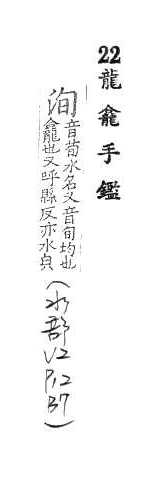 22 龍龕手鑑
洵音荀水名又音旬均也
龕也又呼縣反亦水皃
(水部V2P12B7)